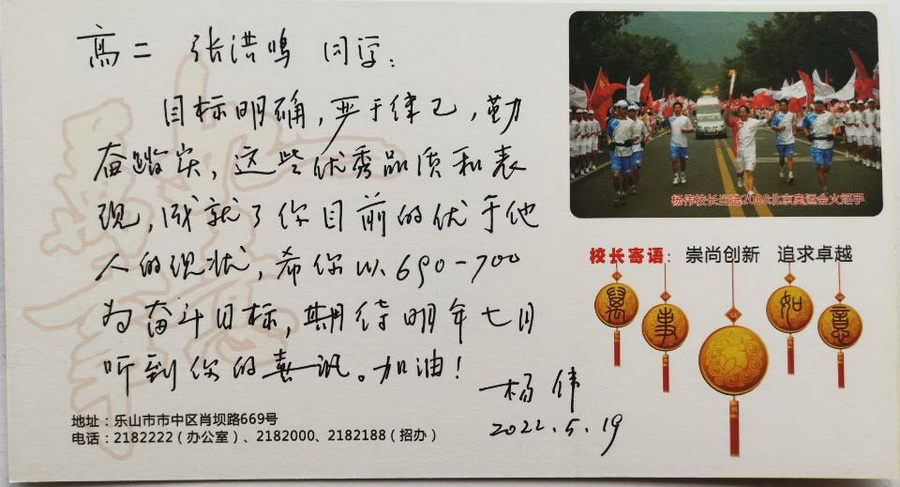 高二 张洪鸣 同学:
目标明确,严于律己,勤
奋踏实,这些优秀品质和表
现,成就了你目前的优于他
人的现状,希你以690-700
为奋斗目标,期待明年七月
听到你的喜讯。加油!
杨伟
2022.5.19
地址:乐山市市中区肖坝路669号
电话:2182222(办公室)、2182000、2182188(招办)
杨伟校长当选2008北京奥运会火炬手
校长寄语: 崇尚创新 追求卓越
万事如意